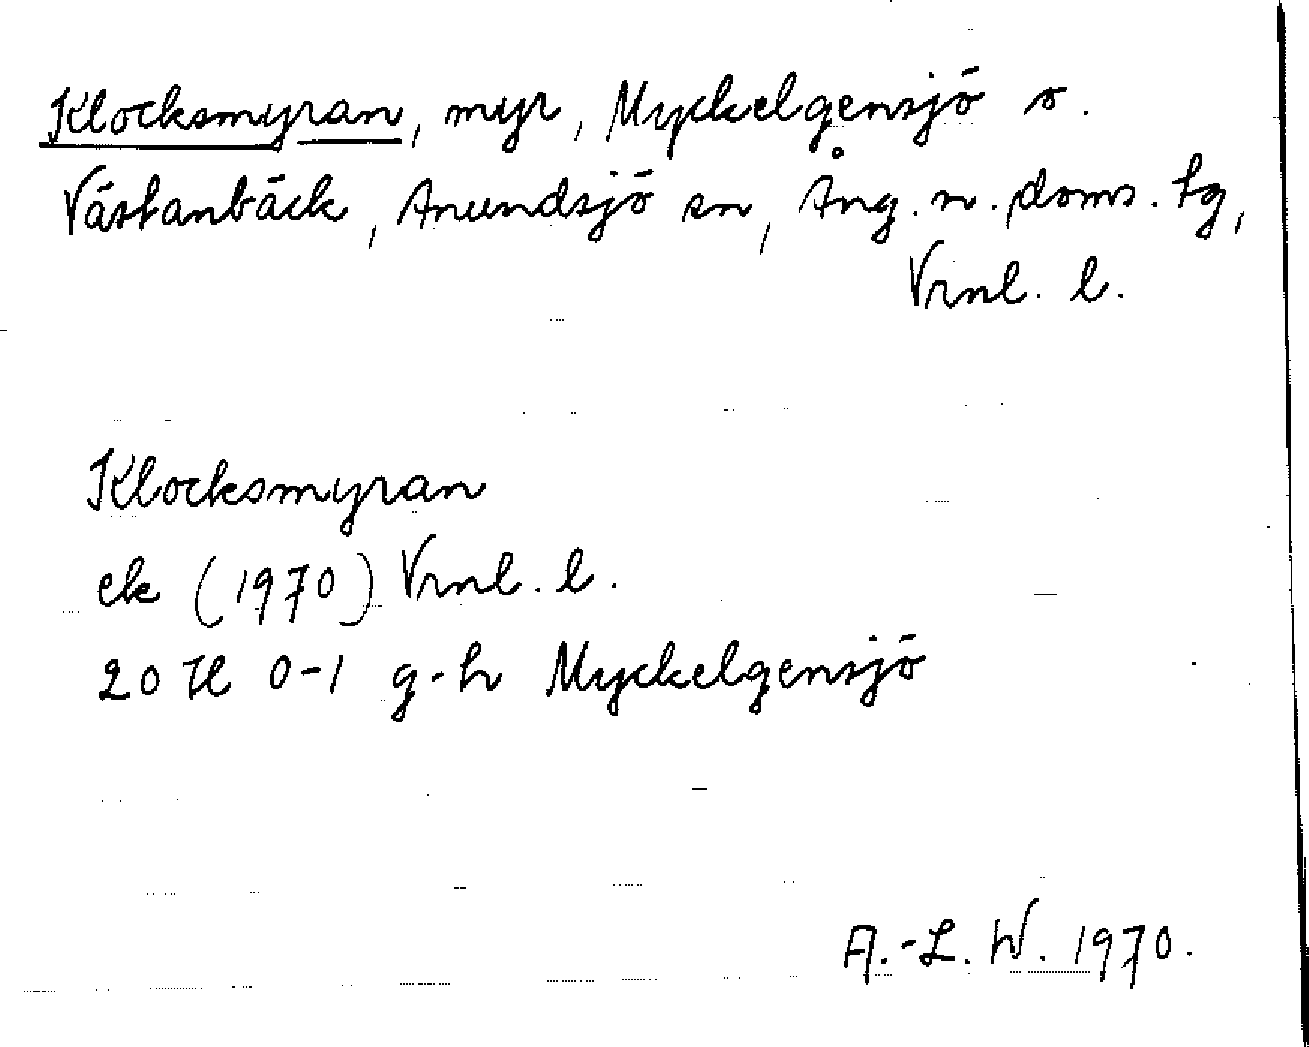 Klocksmyran, myr, Myckelgensjö o.
Västanbäck, Anundsjö sn, Ång. n. doms. tg,
Vrnl. l.
Klocksmyran
ek (1970) Vrnl. l.
20 H 0-1 g-h Myckelgensjö
A.-L. W. 1970.